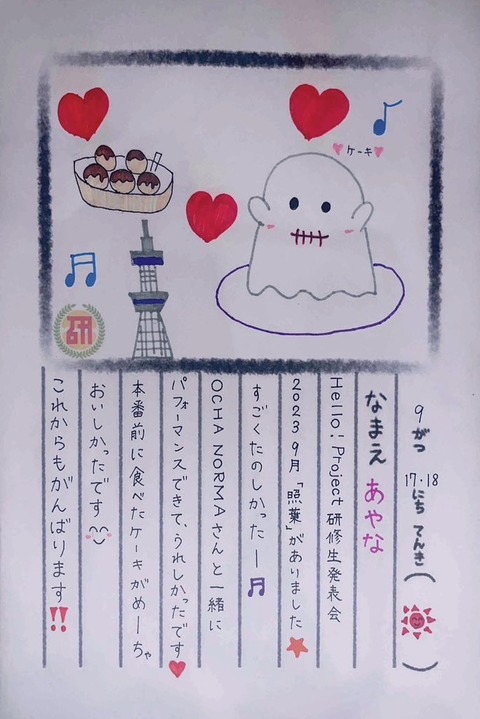 ♥ケーキ♥
研
9がつ17・18にち てんき(☀)
なまえ あやな
Hello! Project 研修生発表会
2023 9月「照葉」がありました★
すごくたのしかったー♬
OCHA NORMAさんと一緒に
パフォーマンスできて、うれしかったです♥
本番前に食べたケーキがめーちゃ
おいしかったです
これからもがんばります!!